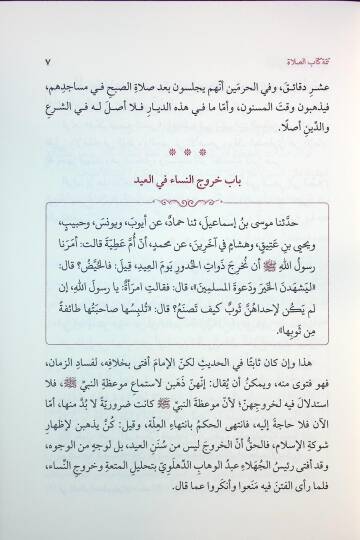 تتمة كتاب الصلاة
٧
عشر دقائق، وفي الحرمَين أنَّهم يجلسون بعد صلاةِ الصبحِ في مساجدِهم،
فيذهبون وقتَ المسنون، وأمّا ما في هذه الديارِ فلا أصلَ له في الشرعِ
والدِّينِ أصلًا.
* * *
باب خروج النساء في العيد
حدَّثنا موسى بنُ إسماعيلَ، ثنا حمادٌ، عن أيوبَ، ويونسَ، وحبيبٍ،
ويحيى بنِ عَتِيقٍ، وهشامٍ في آخَرِينَ، عن محمدٍ، أنَّ أُمَّ عَطِيَّةَ قالت: أمَرَنا
رسولُ اللهِ ﷺ أن نُخرِجَ ذَواتِ الخُدورِ يَومَ العِيدِ، قِيلَ: فالحُيَّضُ؟ قال:
«لِيَشهَدْنَ الخَيرَ ودَعوَةَ المسلمِينَ»، قال: فقالتِ امرَأةٌ: يا رسولَ اللهِ، إن
لم يَكُن لإحداهُنَّ ثَوبٌ كيف تَصنَعُ؟ قال: «تُلبِسُها صاحبَتُها طائفةً
مِن ثَوبِها».
هذا وإن كان ثابتًا في الحديثِ لكنّ الإمامَ أفتى بخلافِه، لفسادِ الزمان،
فهو فتوى منه، ويمكنُ أن يُقال: إنّهنّ ذَهبن لاستماعِ موعظةِ النبيِّ ﷺ، فلا
استدلالَ فيه لخروجِهنّ؛ لأنّ موعظةَ النبيِّ ﷺ كانت ضروريّةً لا بُدَّ منها، أمّا
الآن فلا حاجةَ إليه، فانتهى الحكمُ بانتهاءِ العِلّة، وقيل: كُنَّ يذهبن لإظهارِ
شوكةِ الإسلام، فالحقُّ أنّ الخروجَ ليس من سُنَنِ العيد، بل لوجهٍ من الوجوه،
وقد أفتى رئيسُ الجُهَلاءِ عبدُ الوهابِ الدِّهلَويّ بتحليلِ المتعةِ وخروجِ النِّساء،
فلما رأى الفتنَ فيه مَنَعوا وأنكَروا عما قال.